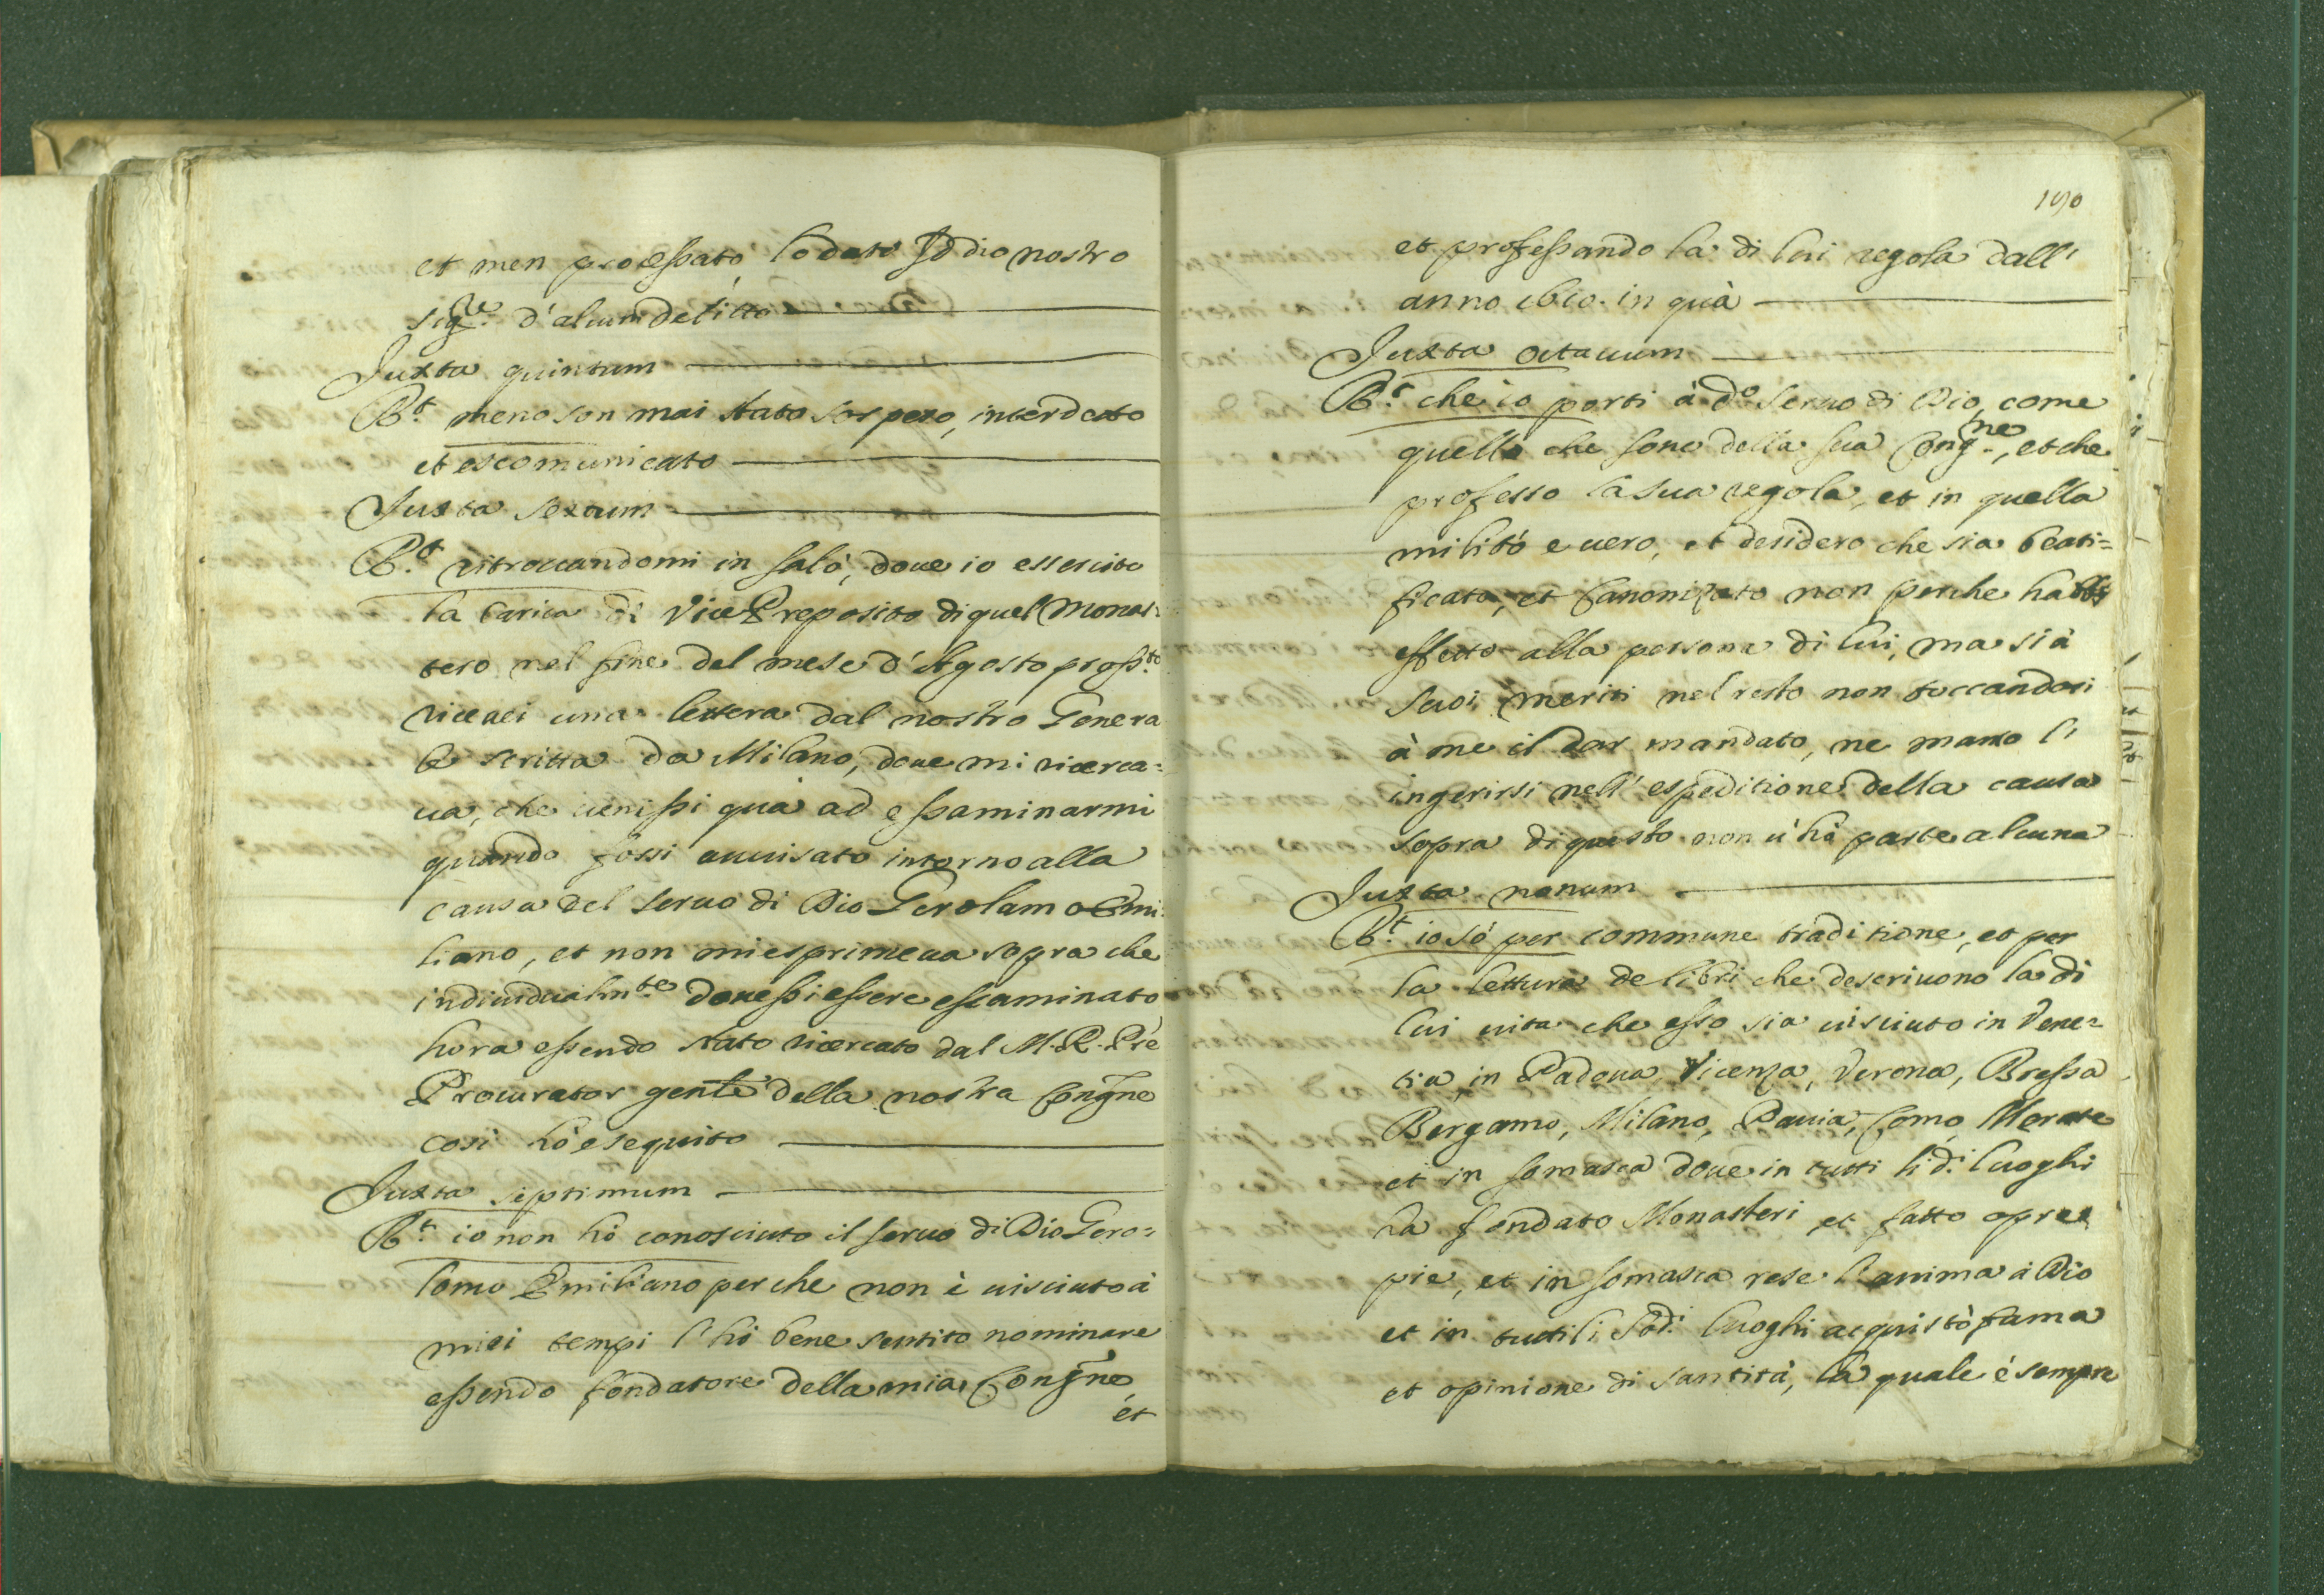 et men processato, lodato Iddio nostro
sig.re d'alcun delitto
Juxta quintum
R.t meno son mai stato sospeso, interdetto
et escomunicato
Juxta sextum
R.t ritrovandomi in Salò, doue io essercito
la carica di Vice Preposito di quel Monas-
tero nel fine del mese d'Agosto pross.to
riceuei una lettera dal nostro Genera
le scritta da Milano, doue mi ricerca=
ua, che uenissi quà ad essaminarmi
quando fossi auuisato intorno alla
causa del seruo di Dio Gerolamo Emi:
liano, et non mi esprimeua sopra che
indiuidualm.te douessi essere escaminato
hora essendo stato ricercato dal M. R. Pre
Procurator gentle della nostra Congne
così hò esequito
Juxta septimum
R.t io non hò conosciuto il seruo di Dio Gero=
lomo Emiliano perche non è uisciuto à
miei tempi l'hò bene sentito nominare
essendo fondatore della mia Congne
et
190
et professando la di lui regola dall'
anno in quà
Juxta octauum
R.t che io porti à d.o seruo di Dio, come
quello che sono della sua Cong.ne, et che
professo la sua regola, et in quella
militò è uero, et desidero che sia beati=
ficato, et Canonizato non perche habbi
effetto alla persona di lui, ma si à
suoi meriti nel resto non toccandosi
à me il dar mandato, ne manco l'
ingerirsi nell'espeditione della causa
sopra di questo non u'hò parte alcuna
Juxta nonum
R.t io sò per commune traditione, et per
la lettura de libri che descriuono la di
lui uita che esso sia uisciuto in Vene=
tia, in Padoua Vicenza, Verona, Bressa
Bergamo, Milano, Pauia, Como, Merate
et in Somasca doue in tutti li d.i luoghi
ha fondato Monasteri et fatto opre
pie, et in Somasca rese l'anima à Dio
et in tutti li sod.i luoghi acquistò fama
et opinione di santità, la quale è sempre